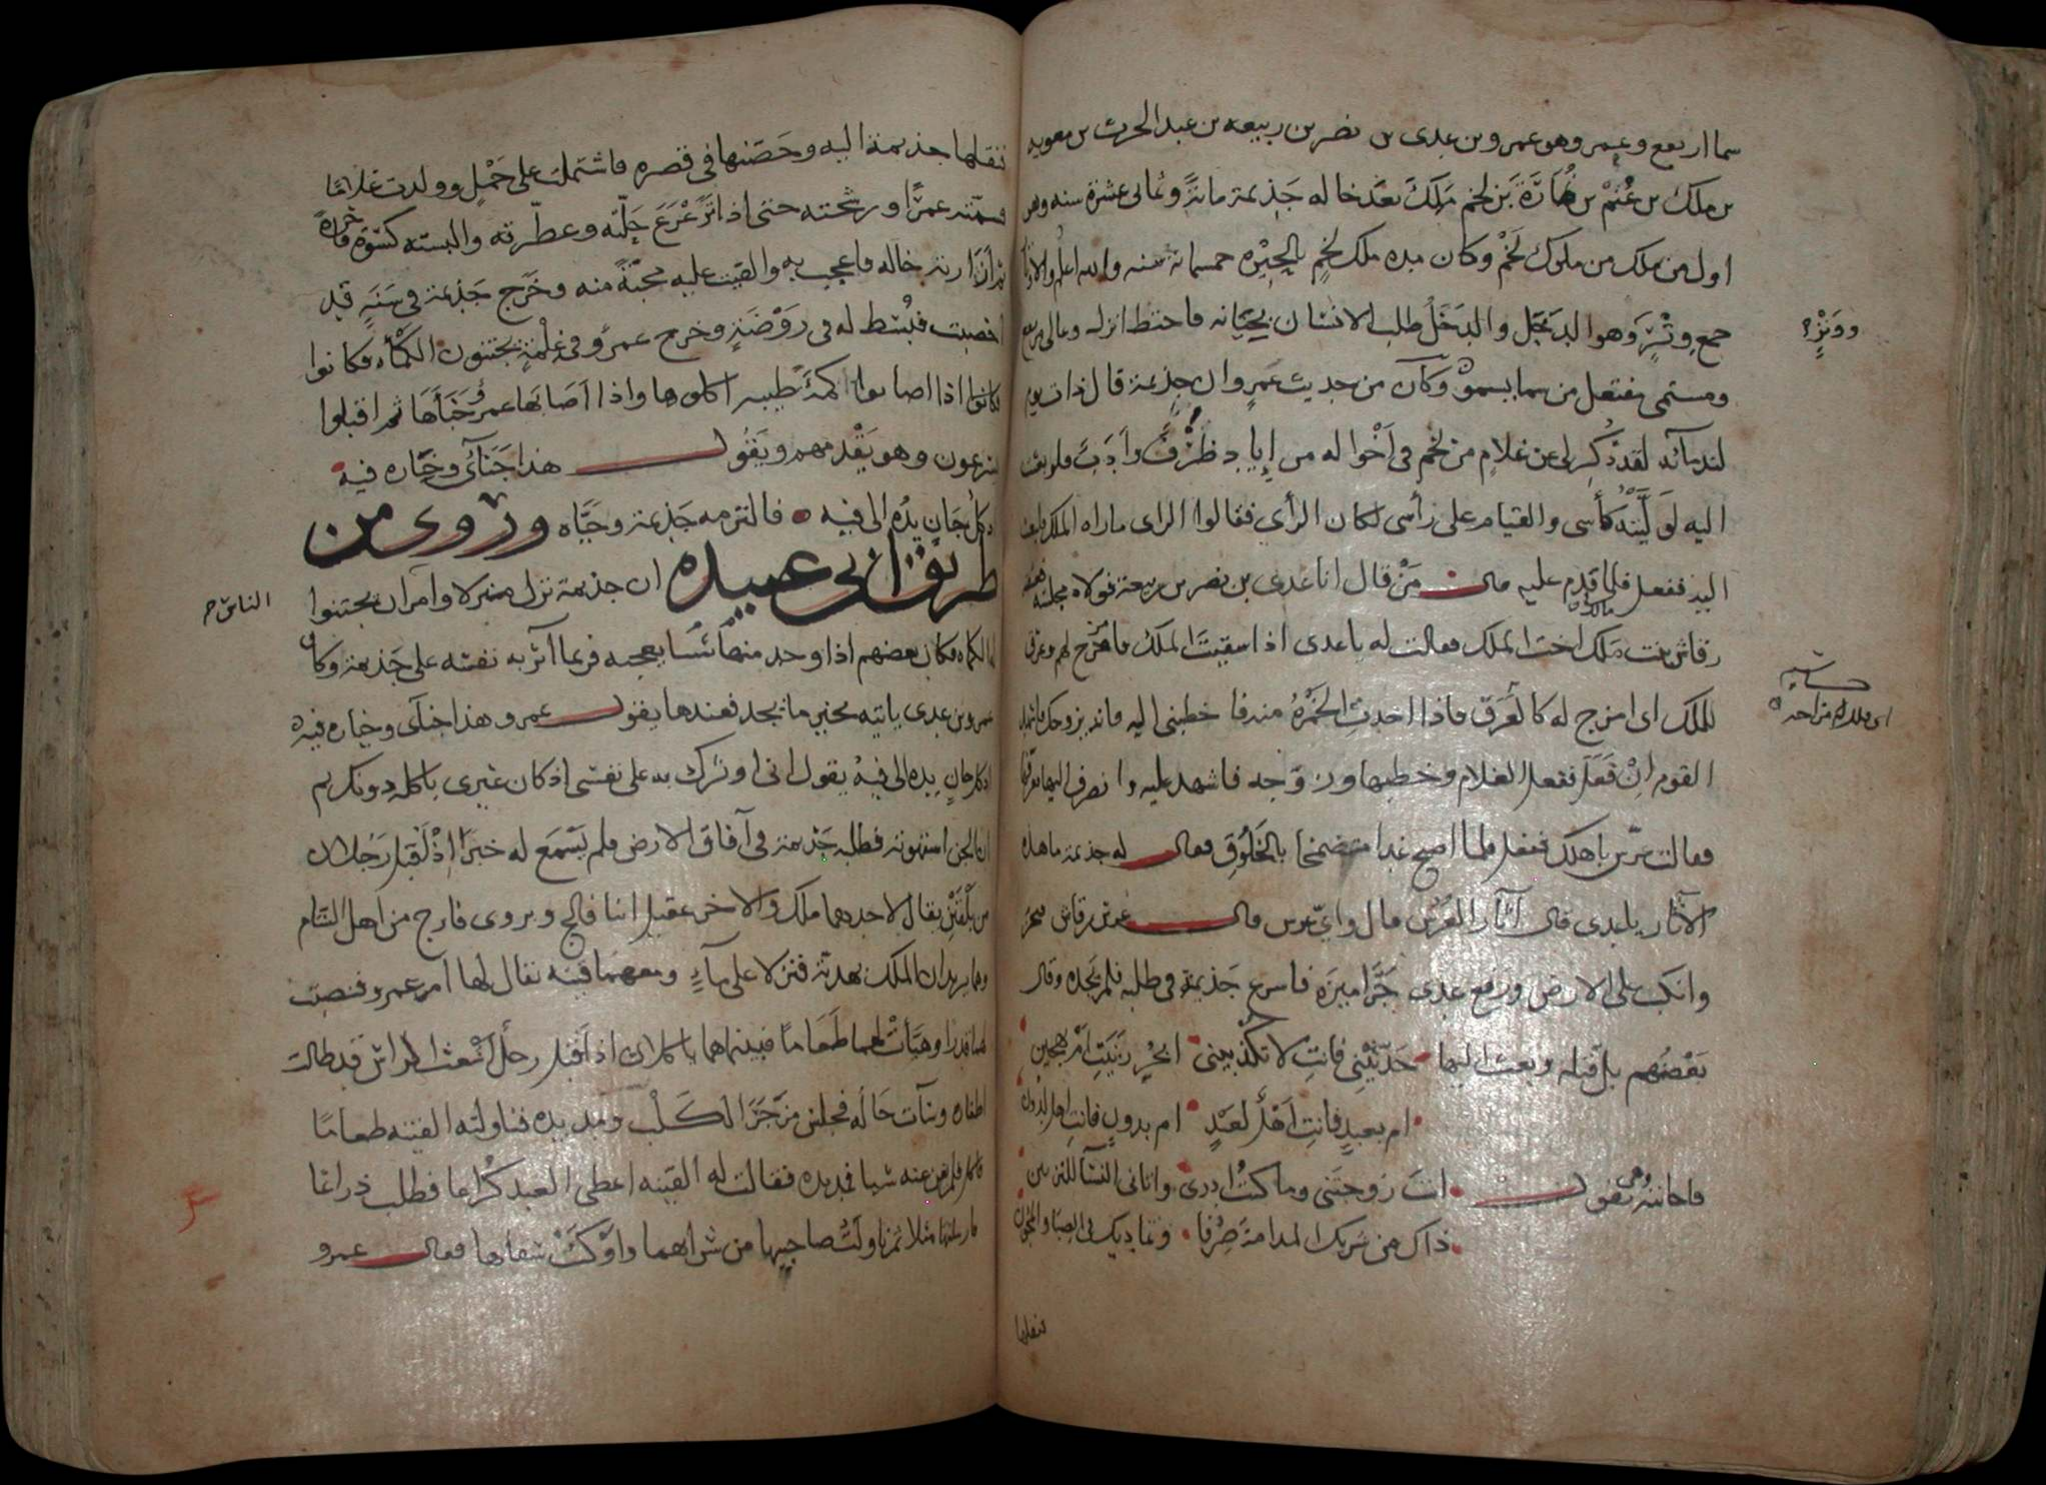 سما اربع وعمر وهو عمرو بن عدى بن نصر بن ربيعه بن عبد الحرث بن معويه
بن ملك بن غنم بن نمارة بن لخم ملك بعد خاله جذيمة مائة وثمانى عشرة سنه وهو
اول من ملك من ملوك لخم وكان مده ملك لخم بالحيره خمسمائة سنه والله اعلم
جمع وتر وهو الدحل والدحل طلب الانسان بجنايه
ومستمى مفتعل من سما يسمو وكان من حديث عمرو ان جذيمة قال ذات يوم
لندمآئه لقد ذكر لى عن غلام من لخم فى اخواله من إياد ظرف وادب فلو بعثت
اليه لو ليته كأسى والقيام على رأسى لكان الرأى فقالوا الراى ما راه الملك فابعث
اليه ففعل فلما قدم عليه قال من قال انا عدى بن نصر بن ربيعة فولاه مجلسه
رقاش بنت ملك اخت الملك فقالت له يا عدى اذا سقيت الملك فامزج لهم وعرق
للملك اى امزج له كالعرق فاذا اخذت الخمرة منه فاخطبنى اليه فانه يزوجك
القوم ان فعل ففعل الغلام وخطبها وزوجه فاشهد عليه وانصرف اليها
فقالت عرس باهلك ففعل فلما اصبح غدا متضمخا بالخلوق فقال له جذيمة ما هذه
الآثار يا عدى قال آثار العرس قال واى عرس قال عرس رقاش
وانكب على الارض ورفع عدى جراميزه فاسرع جذيمة فى طلبه فلم يجده وقال
بعضهم بل قتله وبعث اليها حدثينى فانت لا تكذبينى ابحر زنيت ام بهجين
ام بعبد فانت اهل لعبد ام بدون فانت اهل لدون
فاجابته وهى تقول انت زوجتنى وما كنت ادرى واتانى النسآ للتزيين
ذاك من شربك المدامة صرفا وتماديك فى الصبا والمجون
فنقلها
اى ملك امزاحه
فنقلها جذيمة اليه وحصنها فى قصره فاشتملت على حمل وولدت غلاما
فسمته عمرا ورشحته حتى اذا ترعرع حلته وعطرته والبسته كسوة فاخرة
ثم ارته خاله فاعجب به والقيت عليه محبة منه وخرج جذيمة فى سنة قد
اخصبت فبسط له فى روضة وخرج عمرو فى غلمة يجتنون الكمأه فكانوا
فكانوا اذا اصابوا كمأة طيبه اكلوها واذا اصابها عمرو خبأها ثم اقبلوا
يتعادون وهو يقدمهم ويقول هذا جنآى وخياره فيه
اذ كل جان يده الى فيه فالتزمه جذيمة وحياه وروى من
طريق ابى عبيده ان جذيمة نزل منزلا وامر ان يجتنوا
الناس
له الكماه فكان بعضهم اذا وجد منها شئا يعجبه فربما آثر به نفسه على جذيمة وكان
عمرو بن عدى ياتيه بخير ما يجد فعندها يقول عمرو هذا جناى وخياره فيه
اذ كل جان يده الى فيه يقول انى اوثرك به على نفسى اذ كان غيرى ياكله دونك ثم
ان الجن استهوته فطلبه جذيمة فى آفاق الارض فلم يسمع له خبرا اذ اقبل رجلان
من بلقين يقال لاحدهما ملك والاخر عقيل ابنا فالج ويروى فارج من اهل الشام
وهما يريدان الملك بهدية فنزلا على مآء ومعهما قينه يقال لها ام عمرو فنصبت
لهما قدرا وهيأت لهما طعاما فبينما هما ياكلان اذ اقبل رجل اشعث الراس قد طالت
اظفاره وسآت حاله فجلس مزجر الكلب ومد يده فناولته القينه طعاما
فاكل فلم يغن عنه شيا فمد يده فقالت له القينه اعطى العبد كراعا فطلب ذراعا
فارسلتها مثلا ثم ناولت صاحبيها من شرابهما واوكت سقاها فقال عمرو